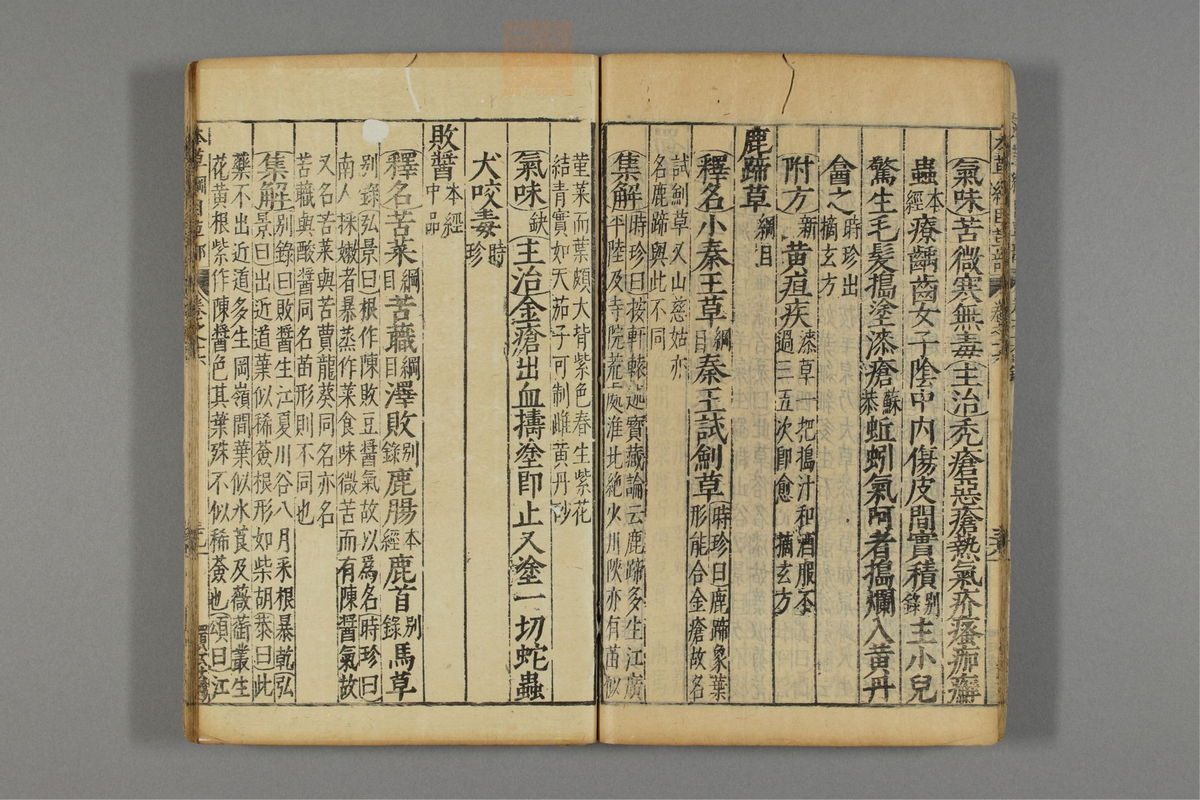 氣味苦微寒無毒主治禿瘡惡瘡熱氣疥瘙痂癬
蟲本經療齲齒女子陰中內傷皮間實積別錄主小兒
驚生毛髮搗塗漆瘡蘇恭蚯蚓氣呵者搗爛入黃丹
盦之時珍出摘玄方
附方新黃疸疾漆草一把搗汁和酒服不過三五次卽愈摘玄方
鹿蹄草綱目
釋名小秦王草綱目秦王試劍草時珍曰鹿蹄象葉形能合金瘡故名
試劍草又山慈姑亦名鹿蹄與此不同
集解時珍曰按軒轅述寶藏論云鹿蹄多生江廣平陸及寺院荒處淮北絶少川陝亦有苗似
菫菜而葉頗大背紫色春生紫花結青實如天茄子可制雌黃丹砂
氣味缺主治金瘡出血擣塗即止又塗一切蛇蟲
犬咬毒時珍
敗醬本經中品
釋名苦菜綱目苦蘵綱目澤敗別錄鹿腸本經鹿首別錄馬草
別錄弘景曰根作陳敗豆醬氣故以爲名時珍曰南人採嫩者暴蒸作菜食味微苦而有陳醬氣故
又名苦菜與苦蕒龍葵同名亦名苦蘵與酸醬同名苗形則不同也
集解別錄曰敗醬生江夏川谷八月采根暴乾弘景曰出近道葉似稀薟根形如柴胡恭曰此
藥不出近道多生岡嶺間葉似水莨及薇蘅叢生花黃根紫作陳醬色其葉殊不似稀薟也頌曰江